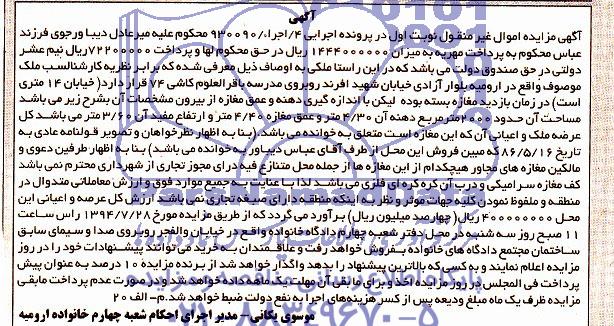 آگهی
آگهی مزایده اموال غیر منقول نوبت اول در پرونده اجرایی ۴/اجرا/۹۳۰۰۹۰ محکوم علیه میرعادل دیبا ورجوی فرزند
عباس محکوم به پرداخت مهریه به میزان ۱۴۴۴۰۰۰۰۰۰ ریال در حق محکوم لها و پرداخت ۷۲۲۰۰۰۰۰ ریال نیم عشر
دولتی در حق صندوق دولت می باشد که در این راستا ملکی به اوصاف ذیل معرفی شده که برابر نظریه کارشناسب ملک
موصوف واقع در ارومیه بلوار آزادی خیابان شهید افرند روبروی مدرسه باقرالعلوم کاشی ۷۴ قرار دارد(خیابان ۱۴ متری
است) در زمان بازدید مغازه بسته بوده لیکن با اندازه گیری دهنه و عمق مغازه از بیرون مشخصات آن بشرح زیر می باشد
مساحت آن حدود ۲۰۰مترمربع دهنه آن ۴/۳۰ متر و عمق مغازه ۴/۴۰ متر و ارتفاع مفید آن ۳/۶۰ متر می باشد کل
عرصه ملک و اعیانی آن که این مغازه است متعلق به خوانده می باشد (بنا به اظهار نظرخواهان و تصویر قولنامه عادی به
تاریخ ۸۶/۵/۱۶ که مبین فروش این محل از طرف آقای عباس دیباور به خوانده می باشد) بنا به اظهار طرفین دعوی و
مالکین مغازه های مجاور هیچکدام از این مغازه ها از جمله محل متنازع فیه درای مجوز تجاری از شهرداری محترم نمی باشد
کف مغازه سرامیکی و درب آن کره کره ای فلزی می باشد لذا با عنایت به جمیع موارد فوق و ارزش معاملاتی متدوال در
منطقه و ملفوظ نمودن کلیه جهات موثر و نظر به اینکه منطقه دارای صبغه تجاری نمی باشد ارزش کل عرصه و اعیانی این
محل ۴۰۰۰۰۰۰۰۰ ریال(چهارصد میلیون ریال) برآورد می گردد که از طریق مزایده مورخ ۱۳۹۴/۷/۲۸ راس ساعت
۱۱ صبح روز سه شنبه در محل دفتر شعبه چهارم دادگاه خانواده واقع در خیابان والفجر روبروی صدا و سیمای سابق
ساختمان مجتمع دادگاه های خانواده بفروش خواهد رفت و علاقمندان به خرید می توانند پیشنهادات خود را در روز
مزایده اعلام نمایند و به کسی که بالاترین پیشنهاد را بدهد واگذار خواهد شد از برنده مزایده ۱۰ درصد به عنوان پیش
پرداخت فی المجلس در روز مزایده اخذ و برای مابقی آن مهلت یک ماهه داده خواهد شد و در صورت عدم پرداخت مابقی
مزایده ظرف یک ماه مبلغ ودیعه پس از کسر هزینه های اجرا به نفع دولت ضبط خواهد شد.م- الف ۲۰
موسوی یکانی- مدیر اجرای احکام شعبه چهارم خانواده ارومیه